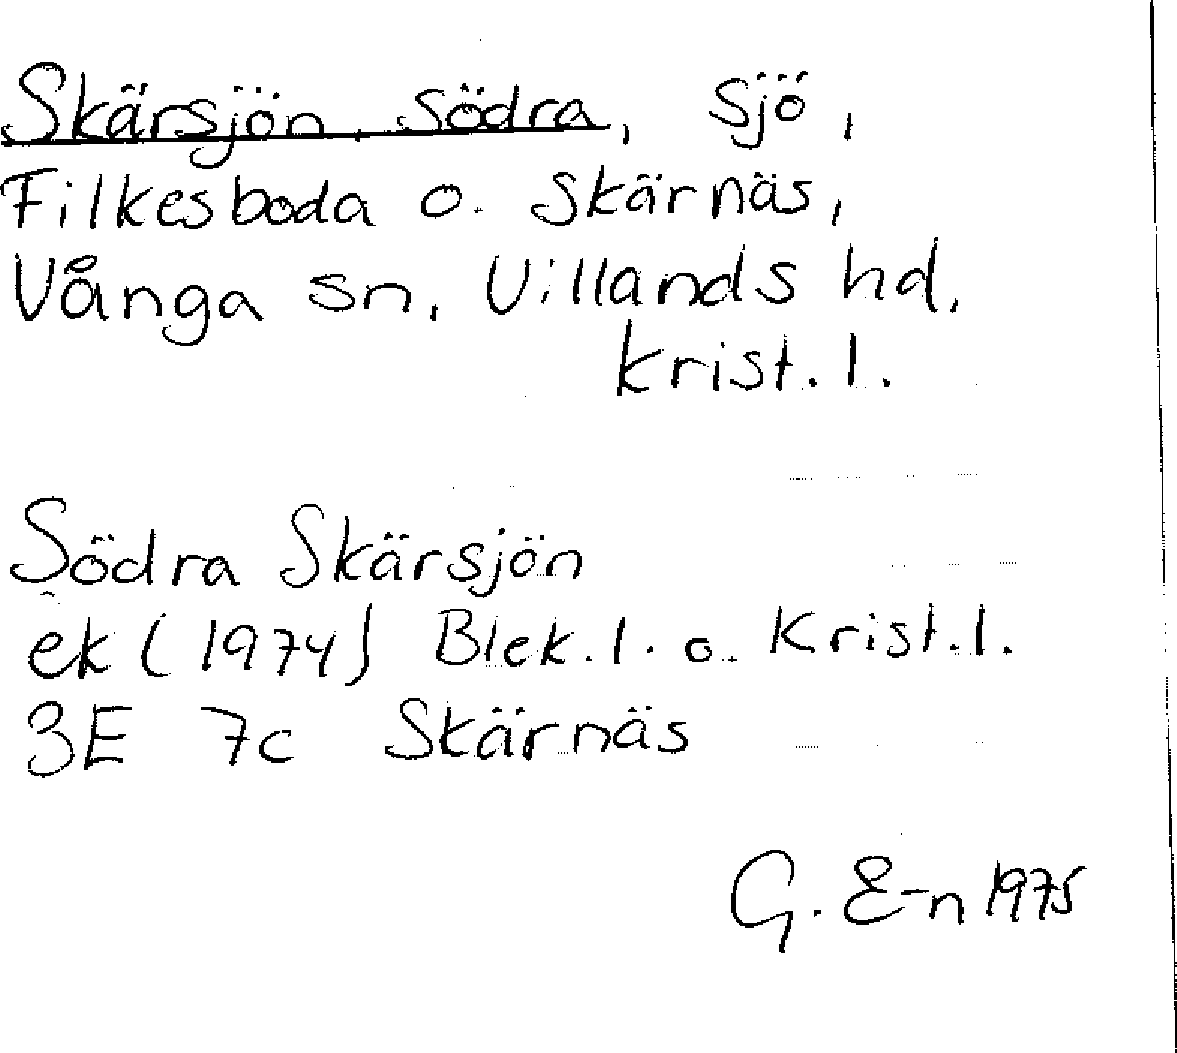 Skärsjön, Södra, sjö,
Filkesboda o. Skärnäs,
Vånga sn, Villands hd,
Krist. l.
Södra Skärsjön
ek (1974) Blek. l. o. Krist. l.
3E 7c Skärnäs
G. E-n 1975